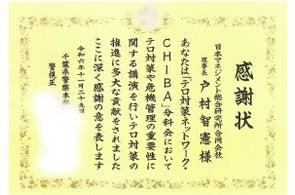 感謝状
日本マネジメント総合研究所合同会社
理事長 戸村智憲様
あなたは「テロ対策ネットワーク・
CHIBA」分科会において
テロ対策や危機管理の重要性に
関する講演を行いテロ対策の
推進に多大な貢献をされました
ここに深く感謝の意を表します
令和六年十一月二十五日
千葉県警察本部
警視正